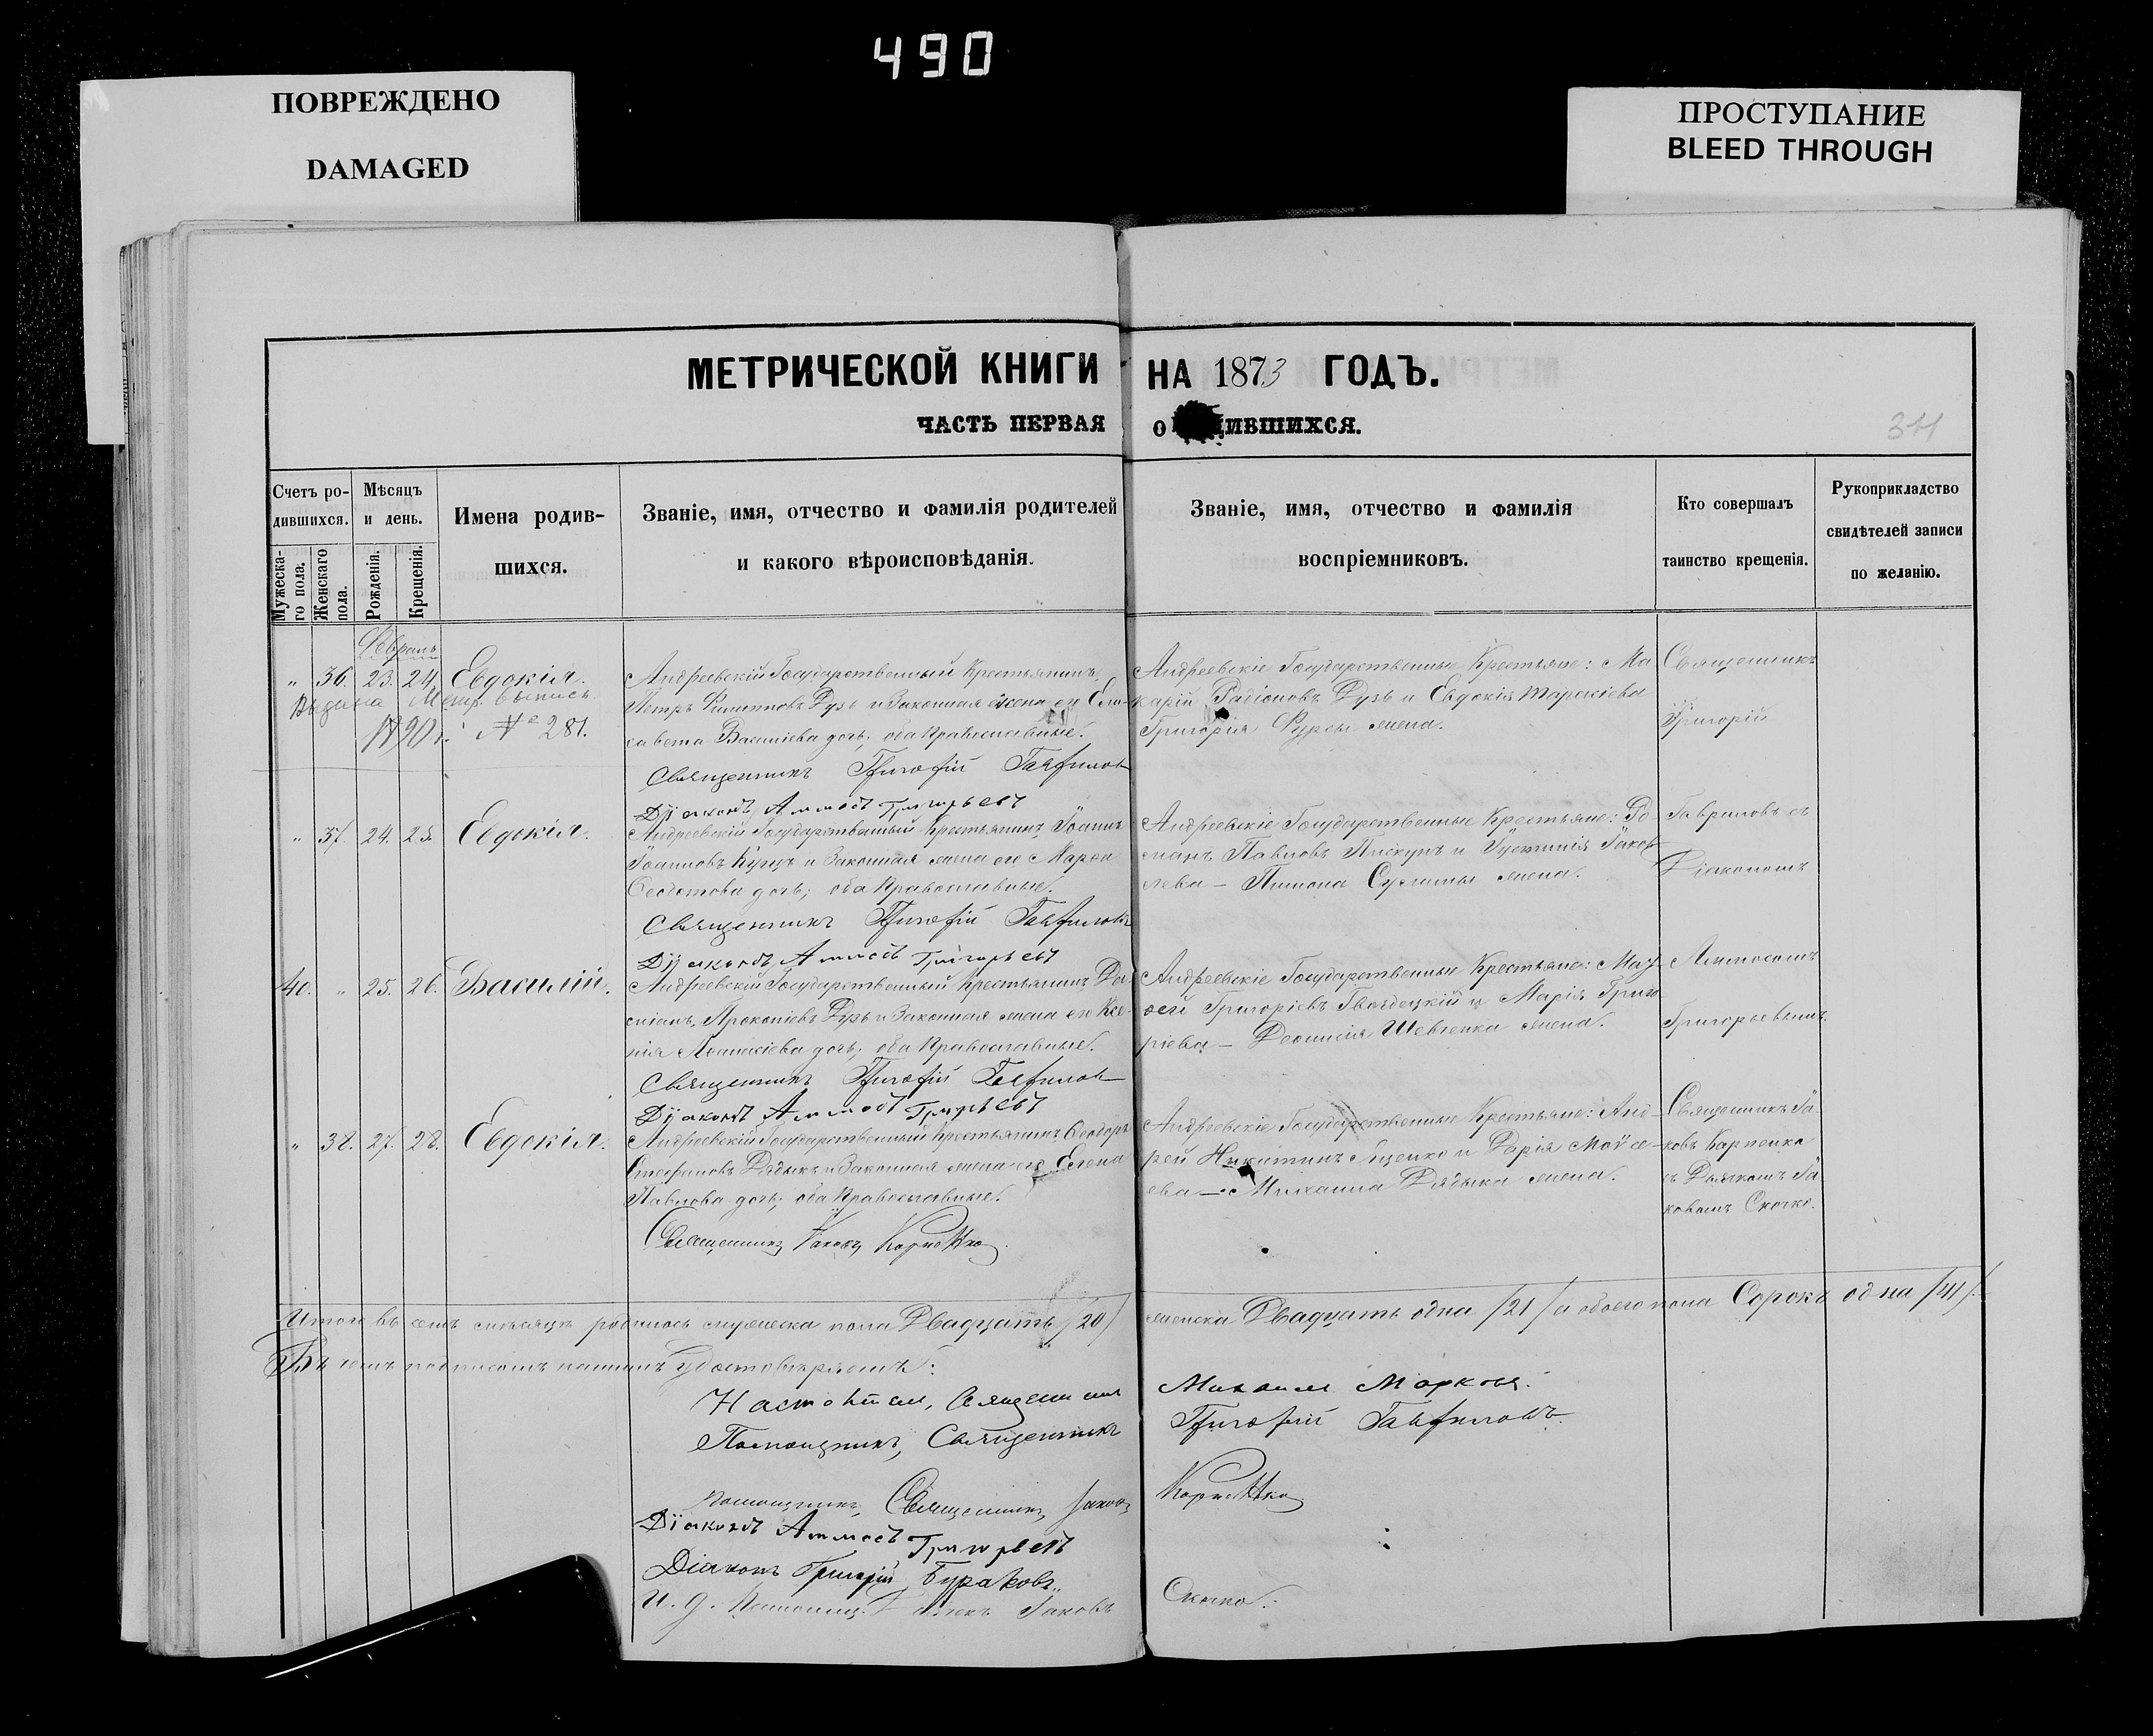 490
ПОВРЕЖДЕНО
DAMAGED
ПРОСТУПАНИЕ
BLEED THROUGH
МЕТРИЧЕСКОЙ КНИГИ НА 1873 ГОДЪ.
ЧАСТЬ ПЕРВАЯ О ДИВШИХСЯ.
311
Счетъ ро-
дившихся.
Мужеска-
го пола.
Женскаго
пола.
Мѣсяцъ
и день.
Рожденія.
Крещенія.
Имена родив-
шихся.
Званіе, имя, отчество и фамилія родителей
и какого вѣроисповѣданія.
Званіе, имя, отчество и фамилія
воспріемниковъ.
Кто совершалъ
таинство крещенія.
Рукоприкладство
свидѣтелей записи
по желанію.
Февраль
" 36. 23. 24. Евдокія.
Выдана Метр. выпись
1890 г. № 281.
Андреевскій Государственный Крестьянинъ
Петръ Филипповъ Рузь и Законная жена его Ели-
савета Васильева дочь; оба Православные.
Священникъ Григорій Гавриловъ
Діаконъ Аммосъ Григорьевъ
Андреевскіе Государственные Крестьяне: Ма
карій Радіоновъ Рузь и Евдокія Тарасіева
Григорія Фурсы жена.
Священникъ
Григорій
" 37. 24. 25. Евдокія.
Андреевскій Государственный Крестьянинъ Іоаннъ
Іоанновъ Куцъ и Законная жена его Марѳа
Ѳеодотова дочь; оба Православные.
Священникъ Григорій Гавриловъ
Діаконъ Аммосъ Григорьевъ
Андреевскіе Государственные Крестьяне: Ро
манъ Павловъ Пискунъ и Іустинія Іаков
лева — Пимона Суслы жена.
Гавриловъ съ
Діакономъ
40. " 25. 26. Василій.
Андреевскій Государственный Крестьянинъ Да
міанъ Прокопіевъ Рузь и Законная жена его Ксе-
нія Аѳанасіева дочь; оба Православные.
Священникъ Григорій Гавриловъ
Діаконъ Аммосъ Григорьевъ
Андреевскіе Государственные Крестьяне: Моѵ
сей Григоріевъ Гвоздецкій и Марія Григо
ріева — Діонисія Шевченка жена.
Аммосомъ
Григорьевымъ.
" 38. 27. 28. Евдокія.
Андреевскій Государственный Крестьянинъ Ѳеодоръ
Стефановъ Дядыкъ и Законная жена его Елена
Павлова дочь; оба Православные.
Священникъ Іаковъ Карпенко
Андреевскіе Государственные Крестьяне: Анд
рей Никитинъ Яценко и Дарія Моѵсе
ева — Михаила Дядыка жена.
Священникъ Іа
ковъ Карпенко
съ Дьячкомъ Іа
ковомъ Скочко.
Итого въ семъ мѣсяцѣ родилось мужеска пола Двадцать /20/ женска Двадцать одна /21/ а обоего пола Сорокъ одна /41/.
Въ чемъ подписомъ нашимъ удостовѣряемъ:
Настоятель, Священникъ Михаилъ Марковъ.
Помощникъ, Священникъ Григорій Гавриловъ.
Помощникъ, Священникъ Іаковъ Карпенко
Діаконъ Аммосъ Григорьевъ
Діаконъ Григорій Бураковъ.
И. д. Іаковъ Скочко.